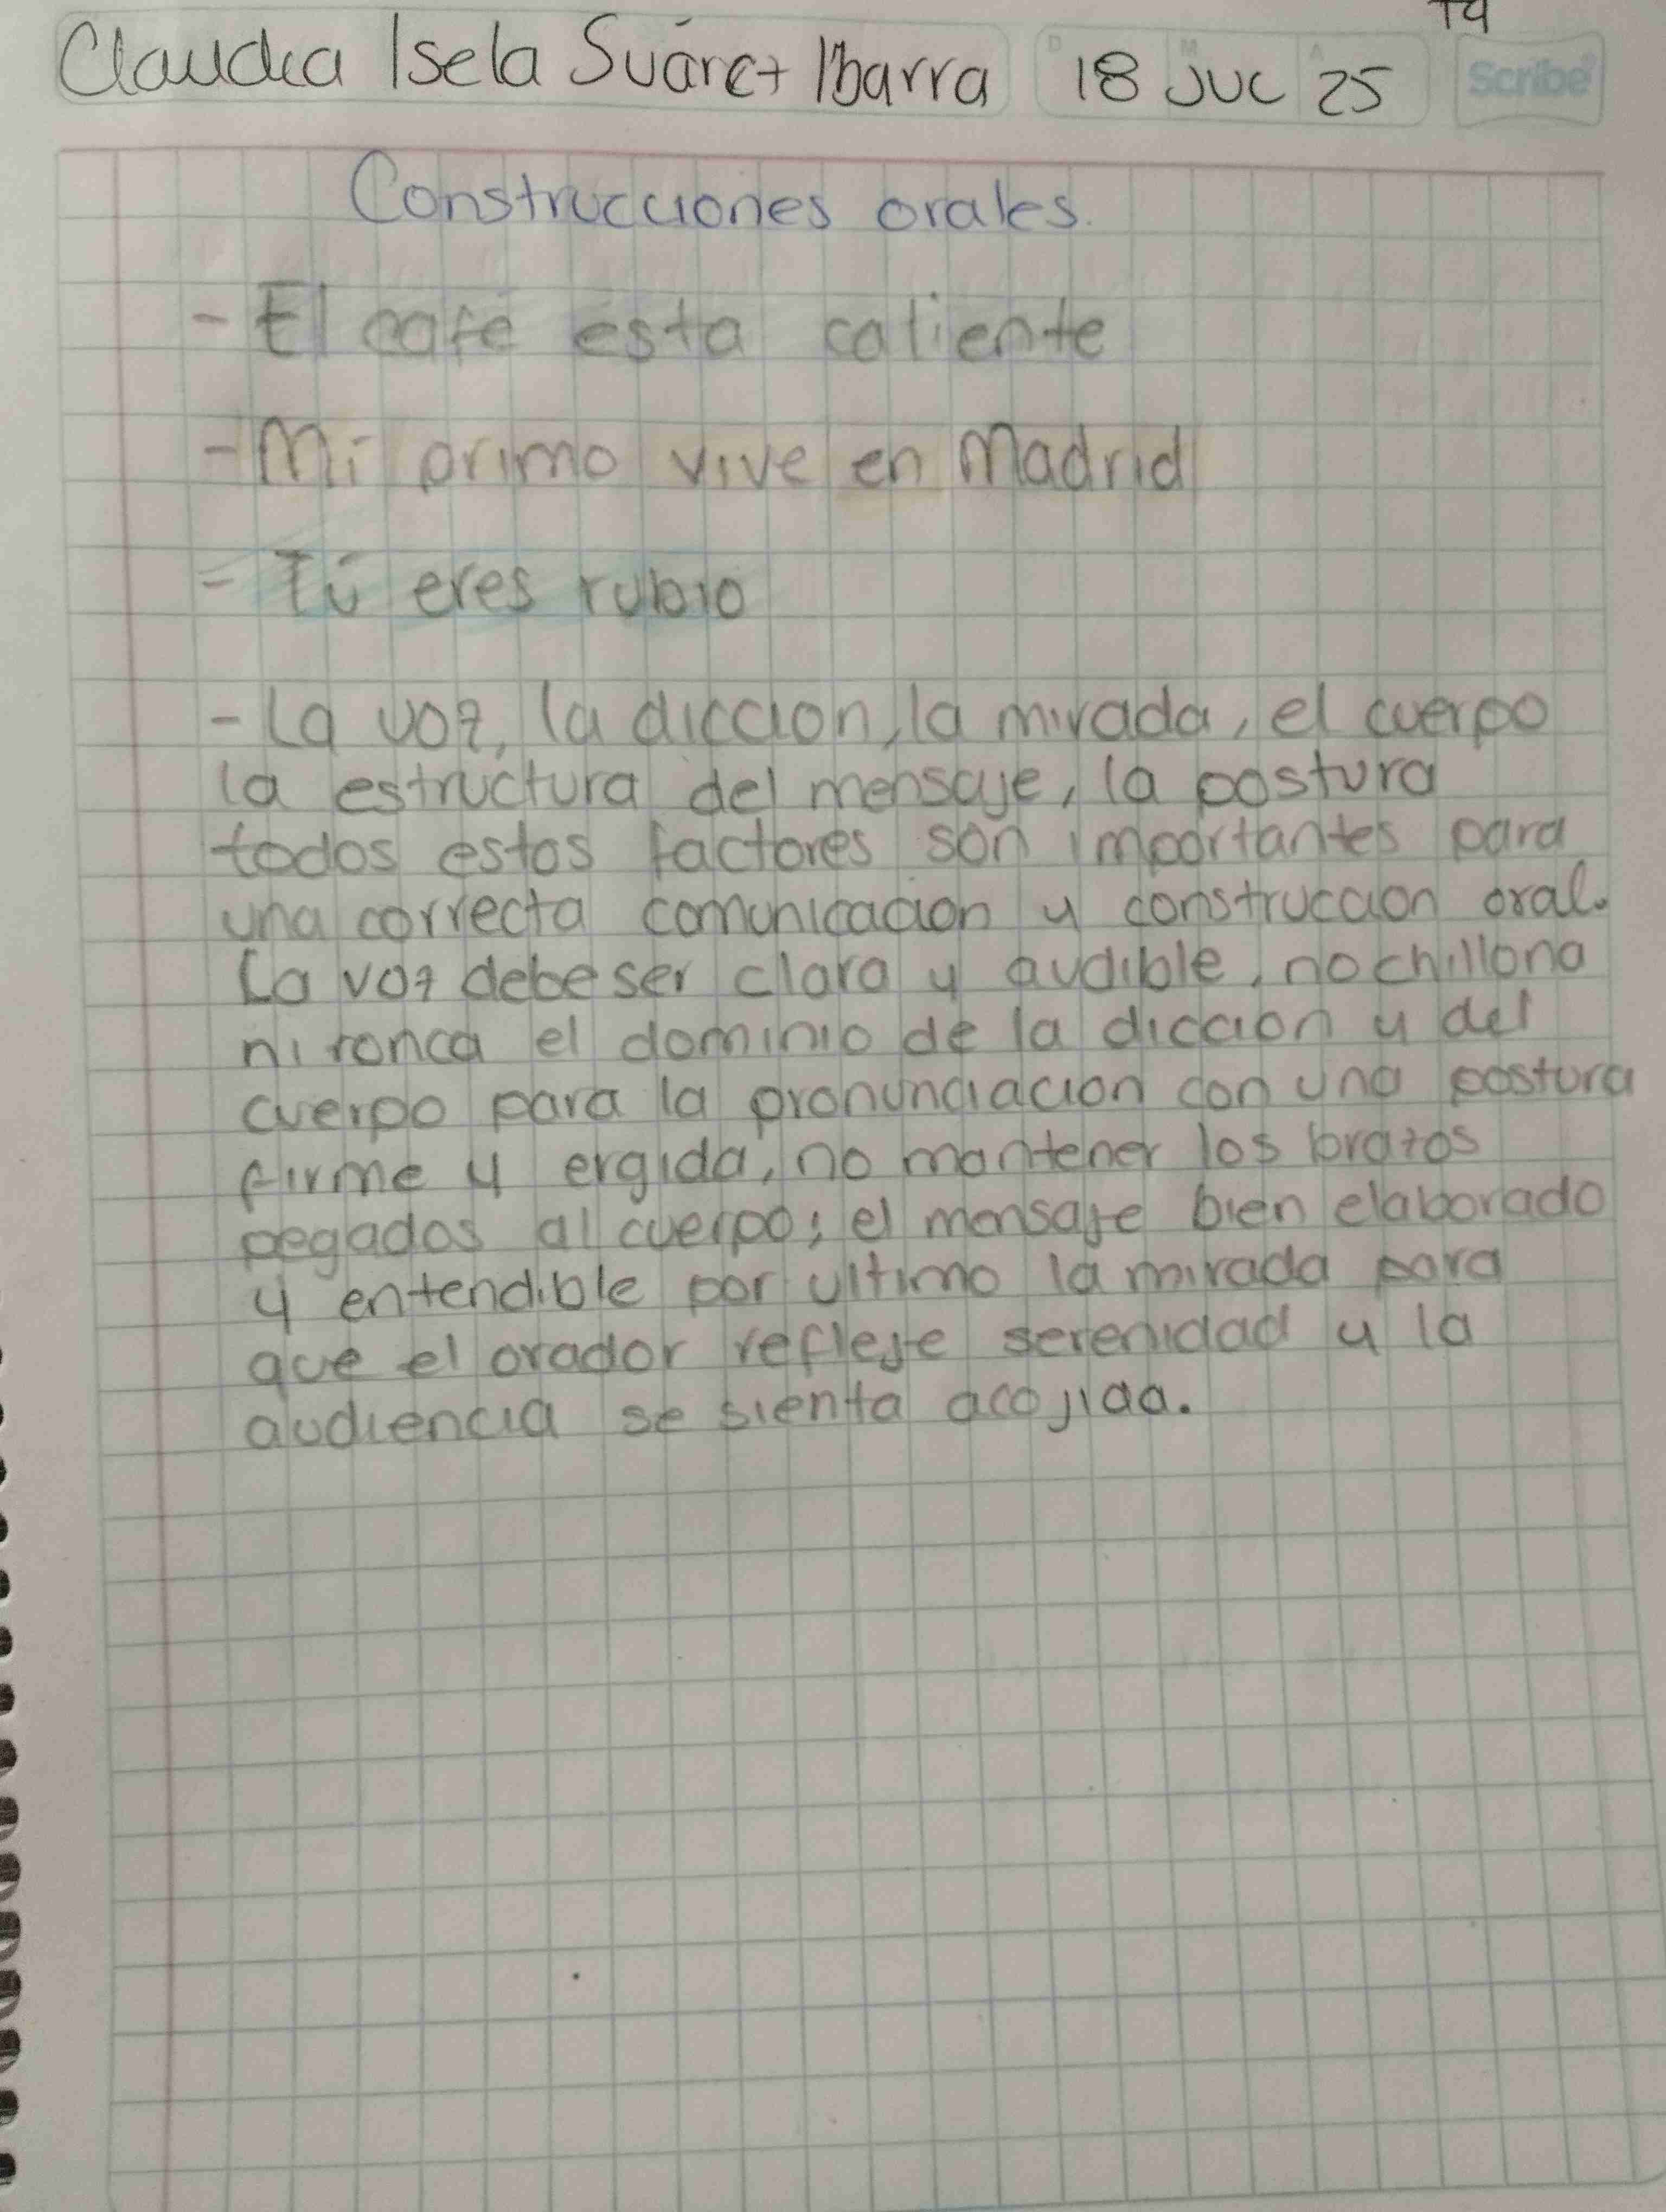 T4
Claudia Isela Suárez Ibarra 18 JUL 25 Scribe
Construcciones orales.
- El café esta caliente
- Mi primo vive en Madrid
- Tú eres rubio
- La voz, la diccion, la mirada, el cuerpo
la estructura del mensaje, la postura
todos estos factores son importantes para
una correcta comunicacion y construccion oral.
La voz debe ser clara y audible, no chillona
ni ronca el dominio de la diccion y del
cuerpo para la pronunciacion con una postura
firme y ergida, no mantener los brazos
pegados al cuerpo; el mensaje bien elaborado
y entendible por ultimo la mirada para
que el orador refleje serenidad y la
audiencia se sienta acojida.